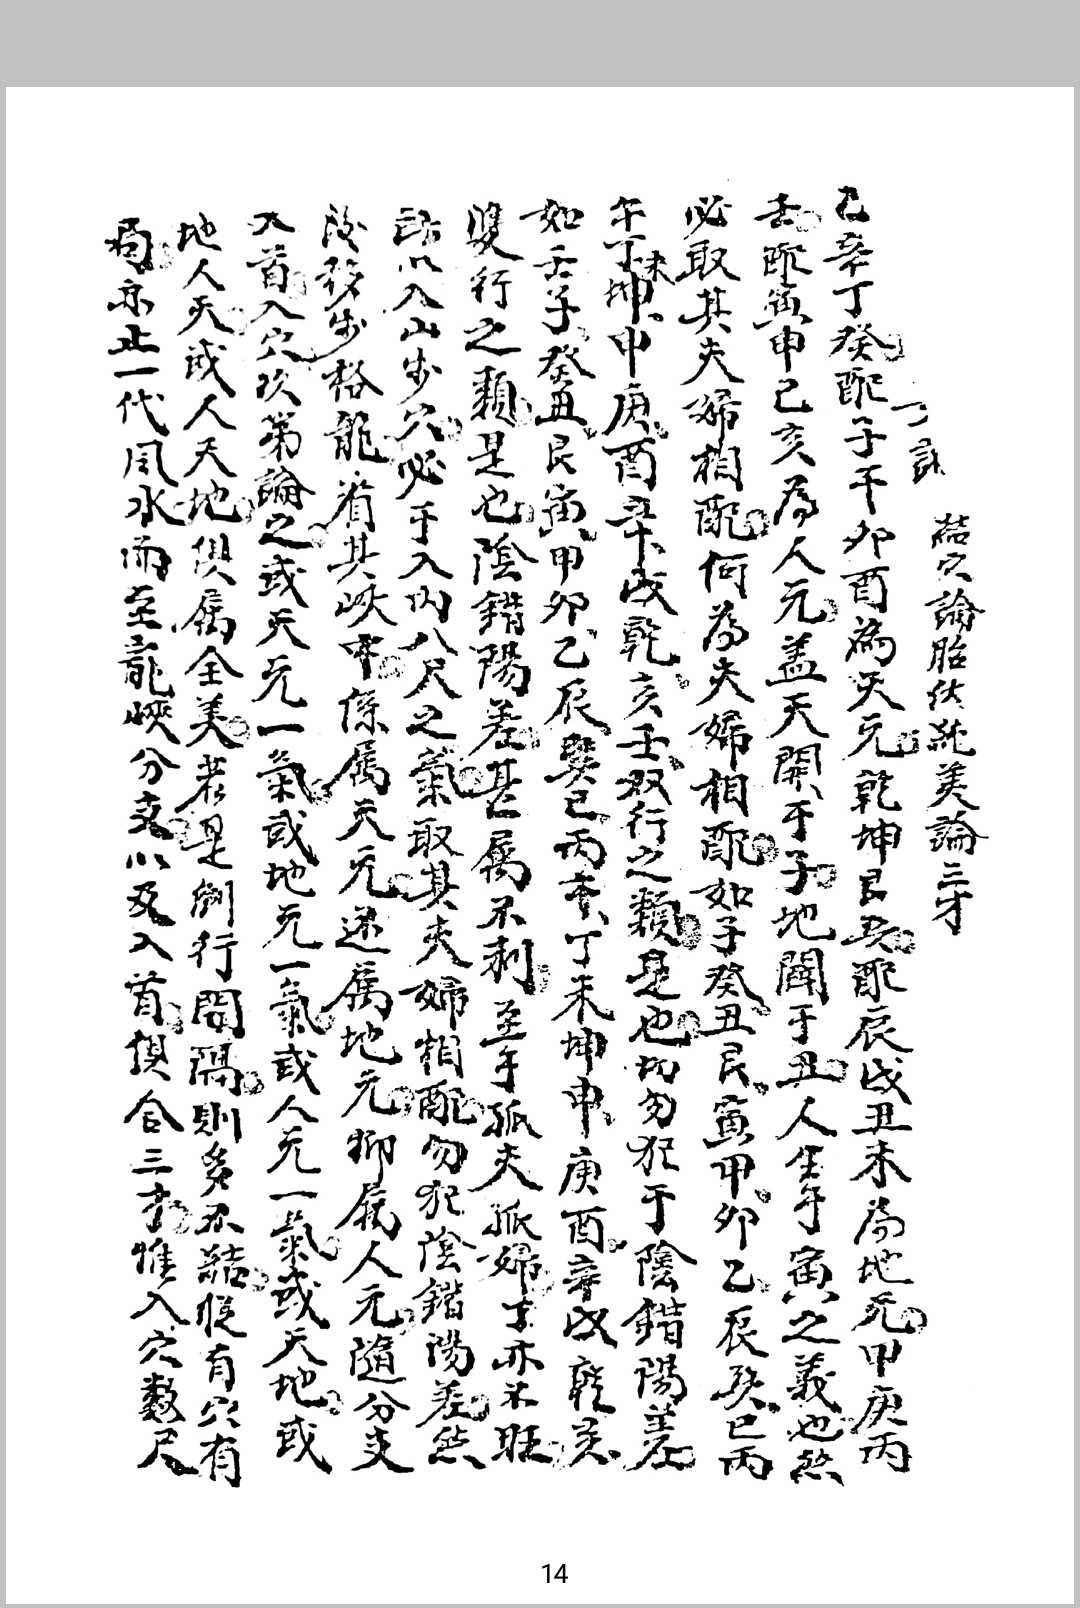 結穴論胎伏純美論三才
乙辛丁癸配子午卯酉為天元乾坤艮巽配辰戌丑未為地元甲庚丙
壬配寅申己亥為人元盖天開于子地闢于丑人生于寅之義也然
必取其夫婦相配何為夫婦相配如子癸丑艮寅甲卯乙辰巽巳丙
午丁未坤申庚酉辛戌乾亥壬双行之類是也切勿犯于陰錯陽差
如壬子癸丑艮寅甲卯乙辰巽巳丙午丁未坤申庚酉辛戌乾亥
雙行之類是也陰錯陽差甚属不利至于孤夫孤婦丁亦不旺
所以入山步穴必于入内八尺之氣取其夫婦相配勿犯陰錯陽差然
後移步格龍省其峽中係属天元还属地元抑属人元隨分支
入首入穴次第論之或天元一氣或地元一氣或人元一氣或天地或
地人天或人天地俱属全美若是倒行間隔則多不結縱有穴有
局亦止一代風水而至龍峽分支以及入首俱合三才惟入穴数尺
14